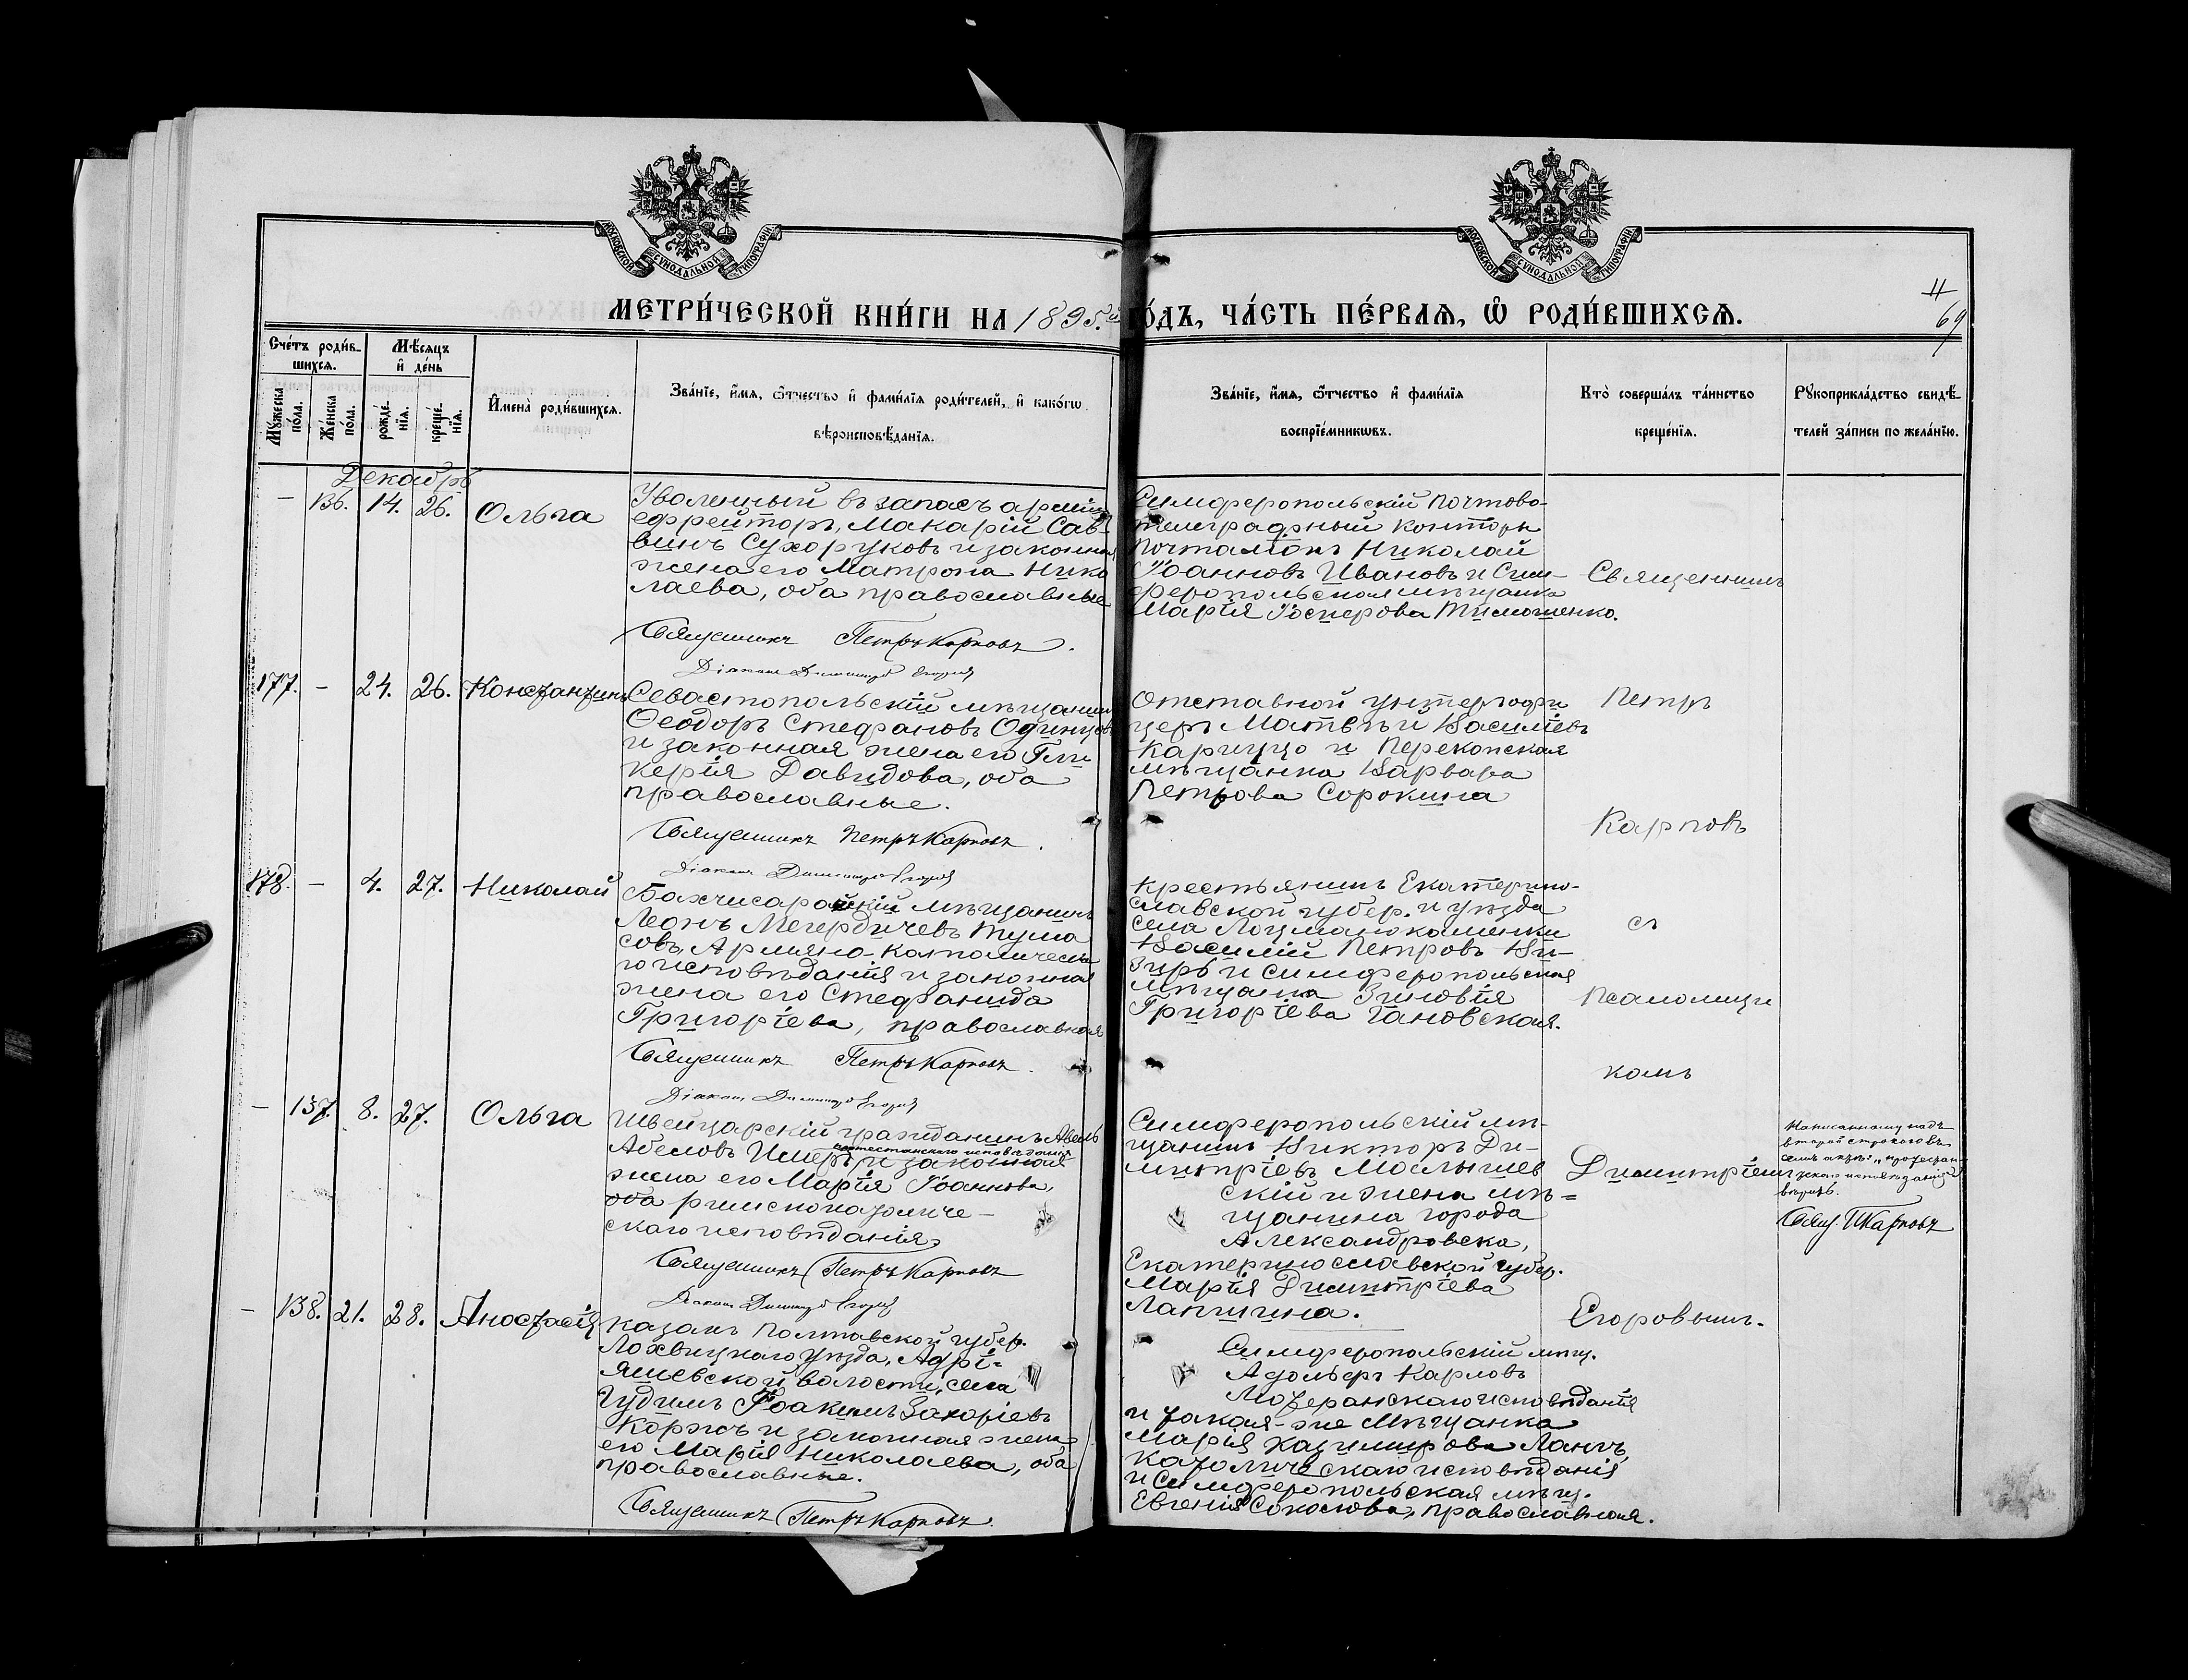 МОСКОВСКОЙ СУНОДАЛЬНОЙ ТИПОГРАФІИ
МОСКОВСКОЙ СУНОДАЛЬНОЙ ТИПОГРАФІИ
МЕТРИ́ЧЕСКОЙ КНИ́ГИ НА 1895.й
О́ДЪ, ЧА́СТЬ ПЕ́РВАѦ, Ѽ РОДИ́ВШИХСѦ.
69
Сче́тъ роди́в-
шихсѧ.
Мѣ́сѧцъ
и҆ де́нь
Мꙋ́жеска
по́ла.
Же́нска
по́ла.
рожде́-
нїѧ.
креще́-
нїѧ.
И҆мена̀ роди́вшихсѧ.
Зва́нїе, и҆́мѧ, ѻ҆́тчество и҆ фами́лїѧ роди́телей, и҆ како́гѡ
вѣроисповѣ́данїѧ.
Зва́нїе, и҆́мѧ, ѻ҆́тчество и҆ фами́лїѧ
воспрїе́мникѡвъ.
Кто̀ соверша́лъ та́инство
креще́нїѧ.
Рꙋкоприкла́дство свидѣ́-
телей за́писи по жела́нїю.
Декабрь
— 136. 14. 26. Ольга
Уволенный въ запасъ арміи
ефрейторъ, Макарій Сав-
винъ Сухоруковъ и законная
жена его Матрона Нико
лаева, оба православные
Священникъ Петръ Карповъ.
Діаконъ Димитрій Егоровъ
Симферопольскій почтово-
телеграфный конторы
почталіонъ Николай
Іоанновъ Ивановъ и Сим-
феропольская мѣщанка
Марія Іосифова Тимошенко.
Священникъ
177. — 24. 26. Константинъ
Севастопольскій мѣщанинъ
Ѳеодоръ Стефановъ Одинцовъ
и законная жена его Гли
керія Давидова, оба
православные.
Священникъ Петръ Карповъ.
Діаконъ Димитрій Егоровъ
Отставной унтеръ офи
церъ Матвѣй Василіевъ
Кариццо и Перекопская
мѣщанка Варвара
Петрова Сорокина
Петръ
Карповъ
178. — 4. 27. Николай
Бахчисарайскій мѣщанинъ
Леонъ Мегердичевъ Тума
совъ, Армяно-католическа
го исповѣданія и законная
жена его Стефанида
Григоріева, православная
Священникъ Петръ Карповъ.
Діаконъ Димитрій Егоровъ
Крестьянинъ Екатерино-
славской губер. и уѣзда
села Лоцманокаменки
Василій Петровъ Ви-
зирь и симферопольская
мѣщанка Зиновія
Григоріева Гановская.
съ
псаломщи
комъ
— 137. 8. 27. Ольга
Швейцарскій гражданинъ Авель
протестанскаго исповѣданія
Абелевъ и законная
жена его Марія Іоаннова,
оба римскокатоличе-
скаго исповѣданія
Священникъ Петръ Карповъ
Діаконъ Димитрій Егоровъ
Симферопольскій мѣ-
щанинъ Викторъ Ди-
митріевъ Малышев
скій и жена мѣ-
щанина города
Александровска,
Екатеринославской губер.
Марія Димитріева
Лапшина.
Димитріемъ
Написанному надъ
второй строкою въ
семъ актѣ: „протестан-
тскаго исповѣданія"
вѣрить.
Свящ. П. Карповъ
— 138. 21. 28. Анастасія
Казакъ Полтавской губер.
Лохвицкаго уѣзда, Адрі-
яшевской волости, села
Гудимъ Іоакимъ Захаріевъ
Коржъ и законная жена
его Марія Николаева, оба
православные.
Священникъ Петръ Карповъ.
Симферопольскій мѣщ.
Адольфъ Карловъ
Лютеранскаго исповѣданія
и такая-же мѣщанка
Марія Казимирова Ланчъ,
католическаго исповѣданія
и Симферопольская мѣщ.
Евгенія Соколова, православная.
Егоровымъ.